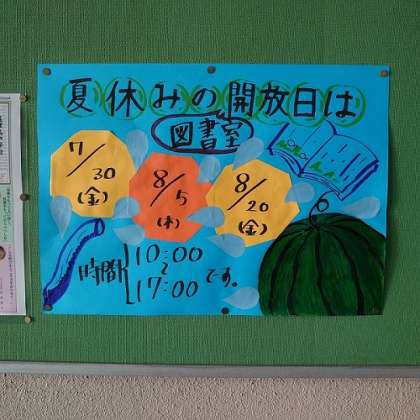 夏休みの開放日は
図書室
7/30
(金)
8/5
(木)
8/20
(金)
時間 10:00
~
17:00 です。